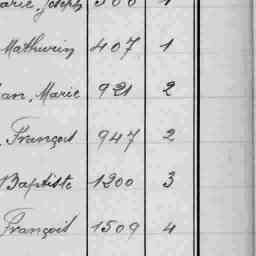 arie, Joseph 300 1
Mathurin 407 1
an, Marie 921 2
, François 947 2
Baptiste 1200 3
François 1509 4